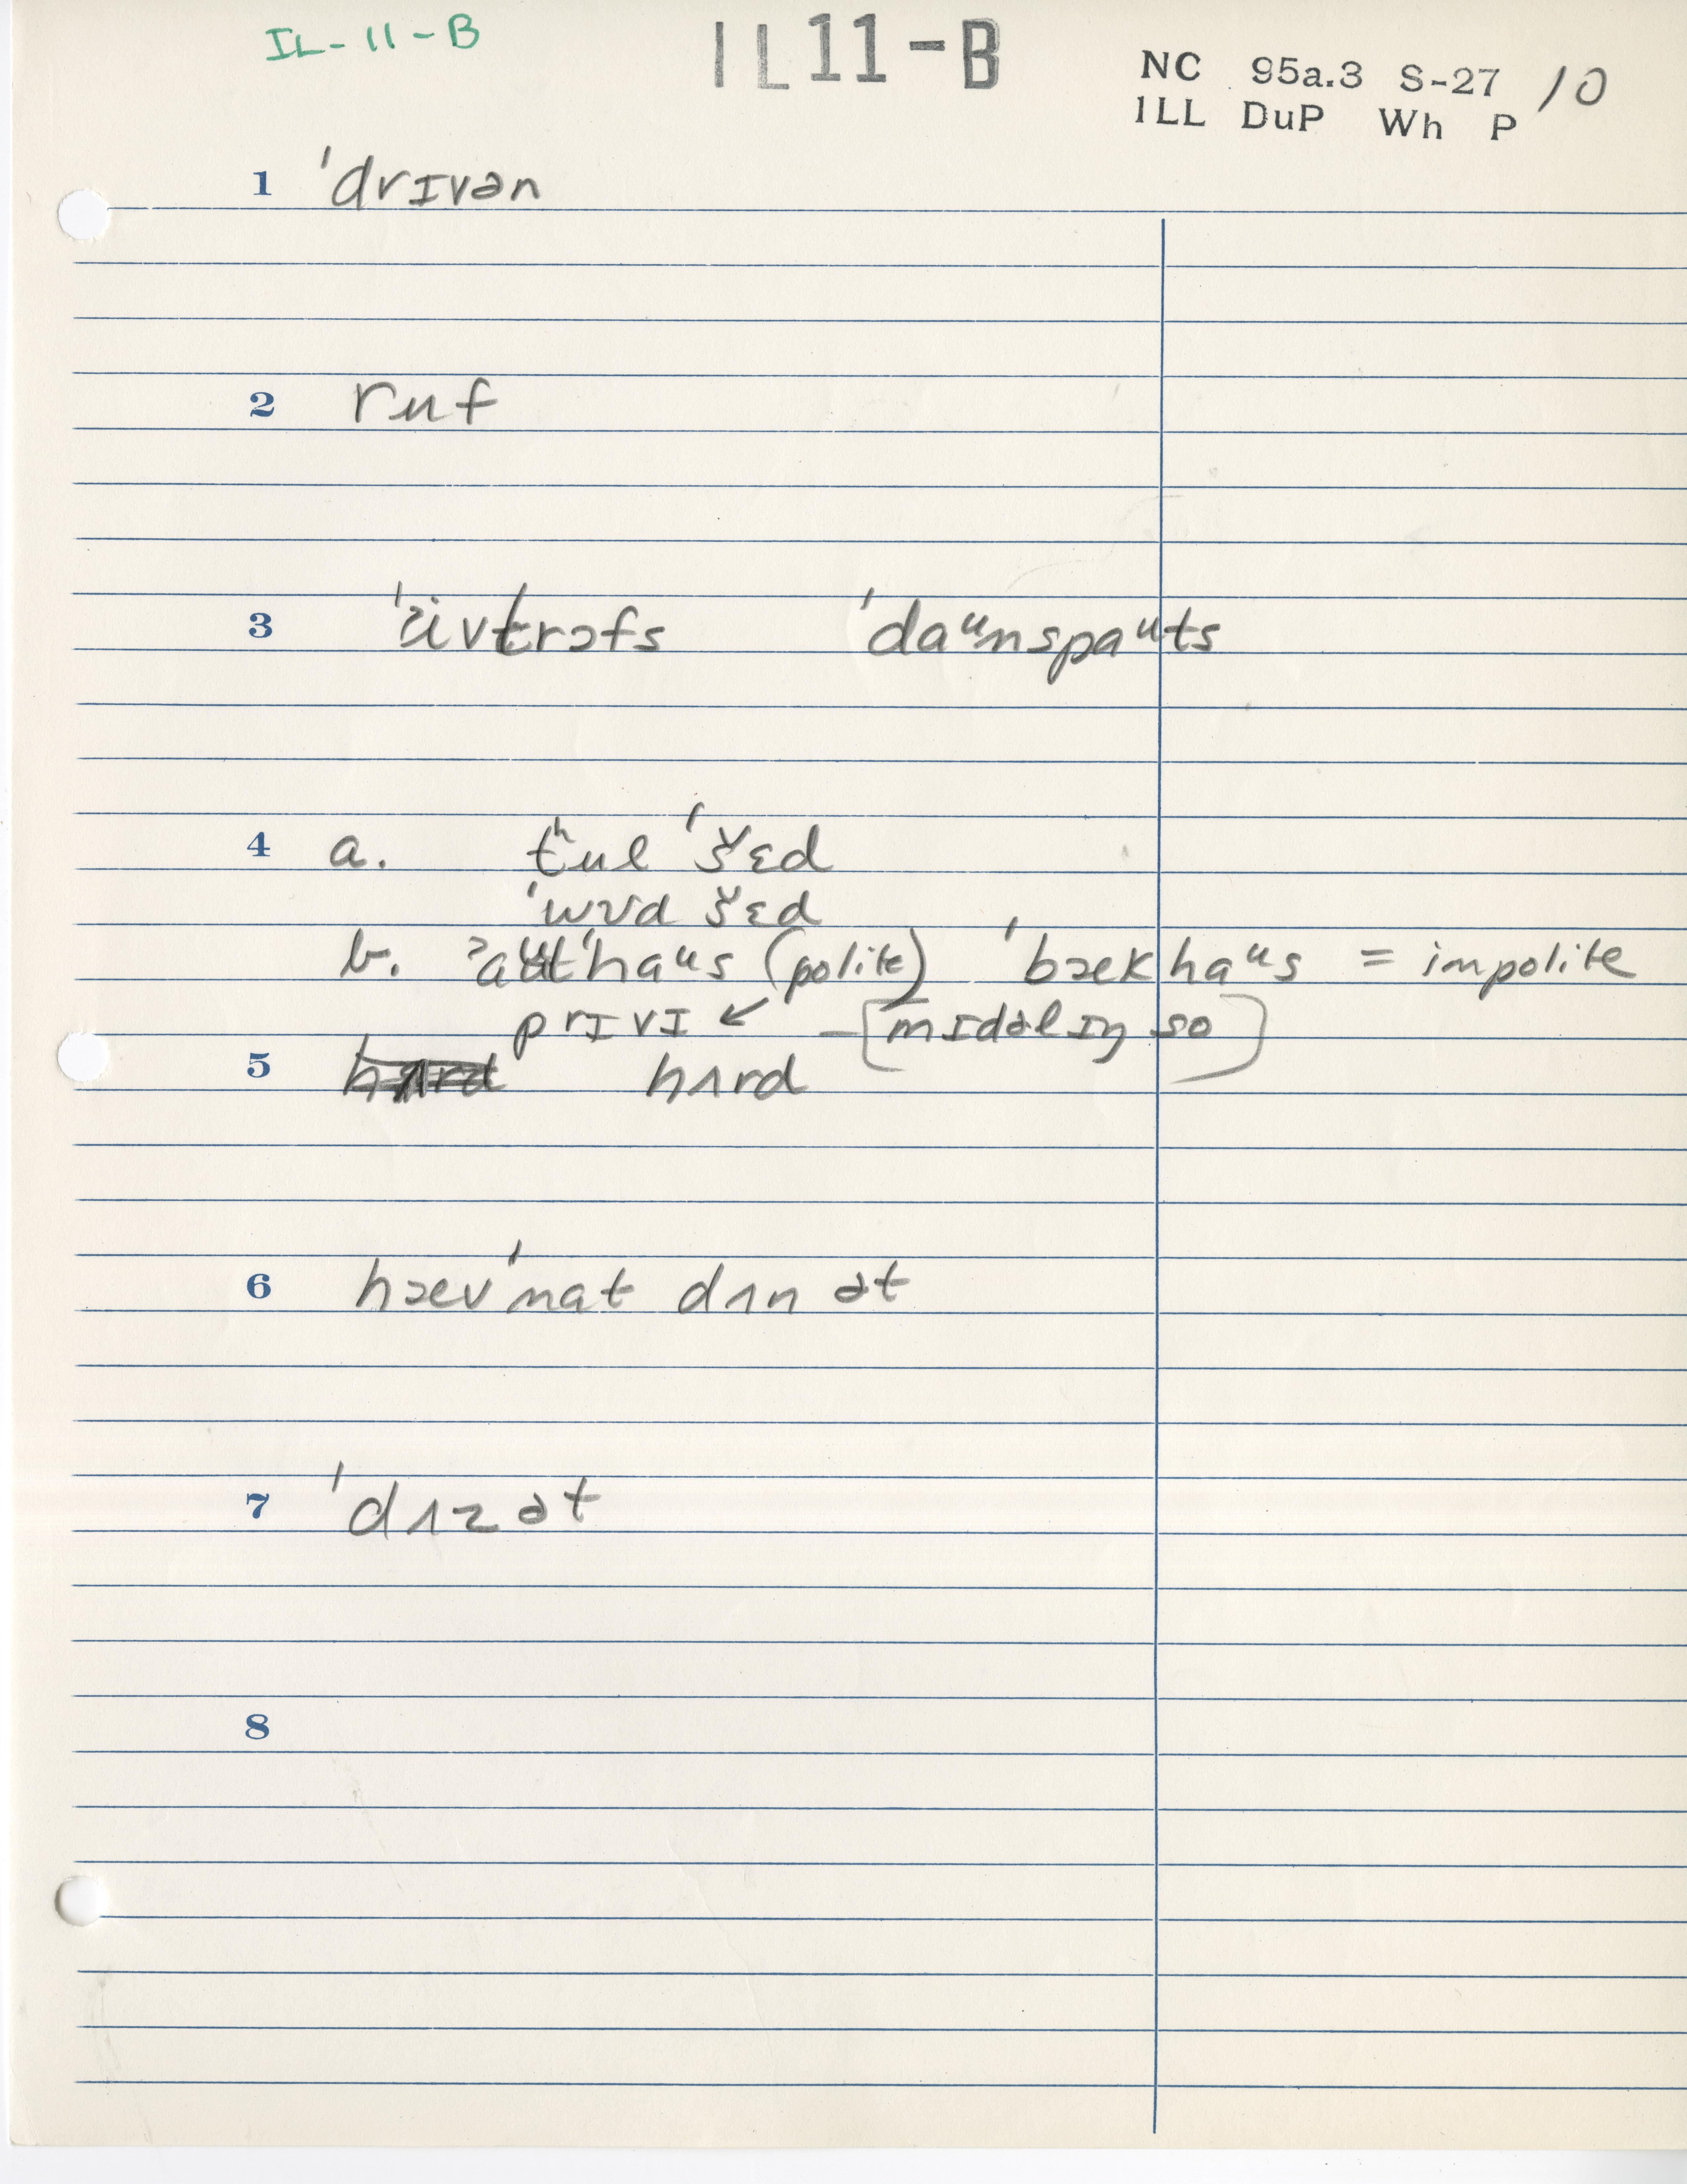 IL-11-B IL11-B NC 95a.3 S-27 10
ILL DuP Wh P
1 ˈdrɪvən
2 ruf
3 ˈdaᵘnspaᵘts
4 a. tʰul ˈšɛd
ˈwʊd šɛd
b. (polite) ˈbækhaᵘs = impolite
prɪvɪ ↙ – [mɪdəlɪŋ so]
5 hʌrd
6 hævˈnat dʌn ət
7 ˈdʌz ət
8